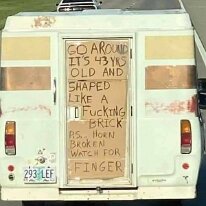 GO AROUND
IT'S 43 YRS
OLD AND
SHAPED
LIKE A
FUCKING
BRICK
P.S. HORN
BROKEN
WATCH FOR
FINGER
293 LEF